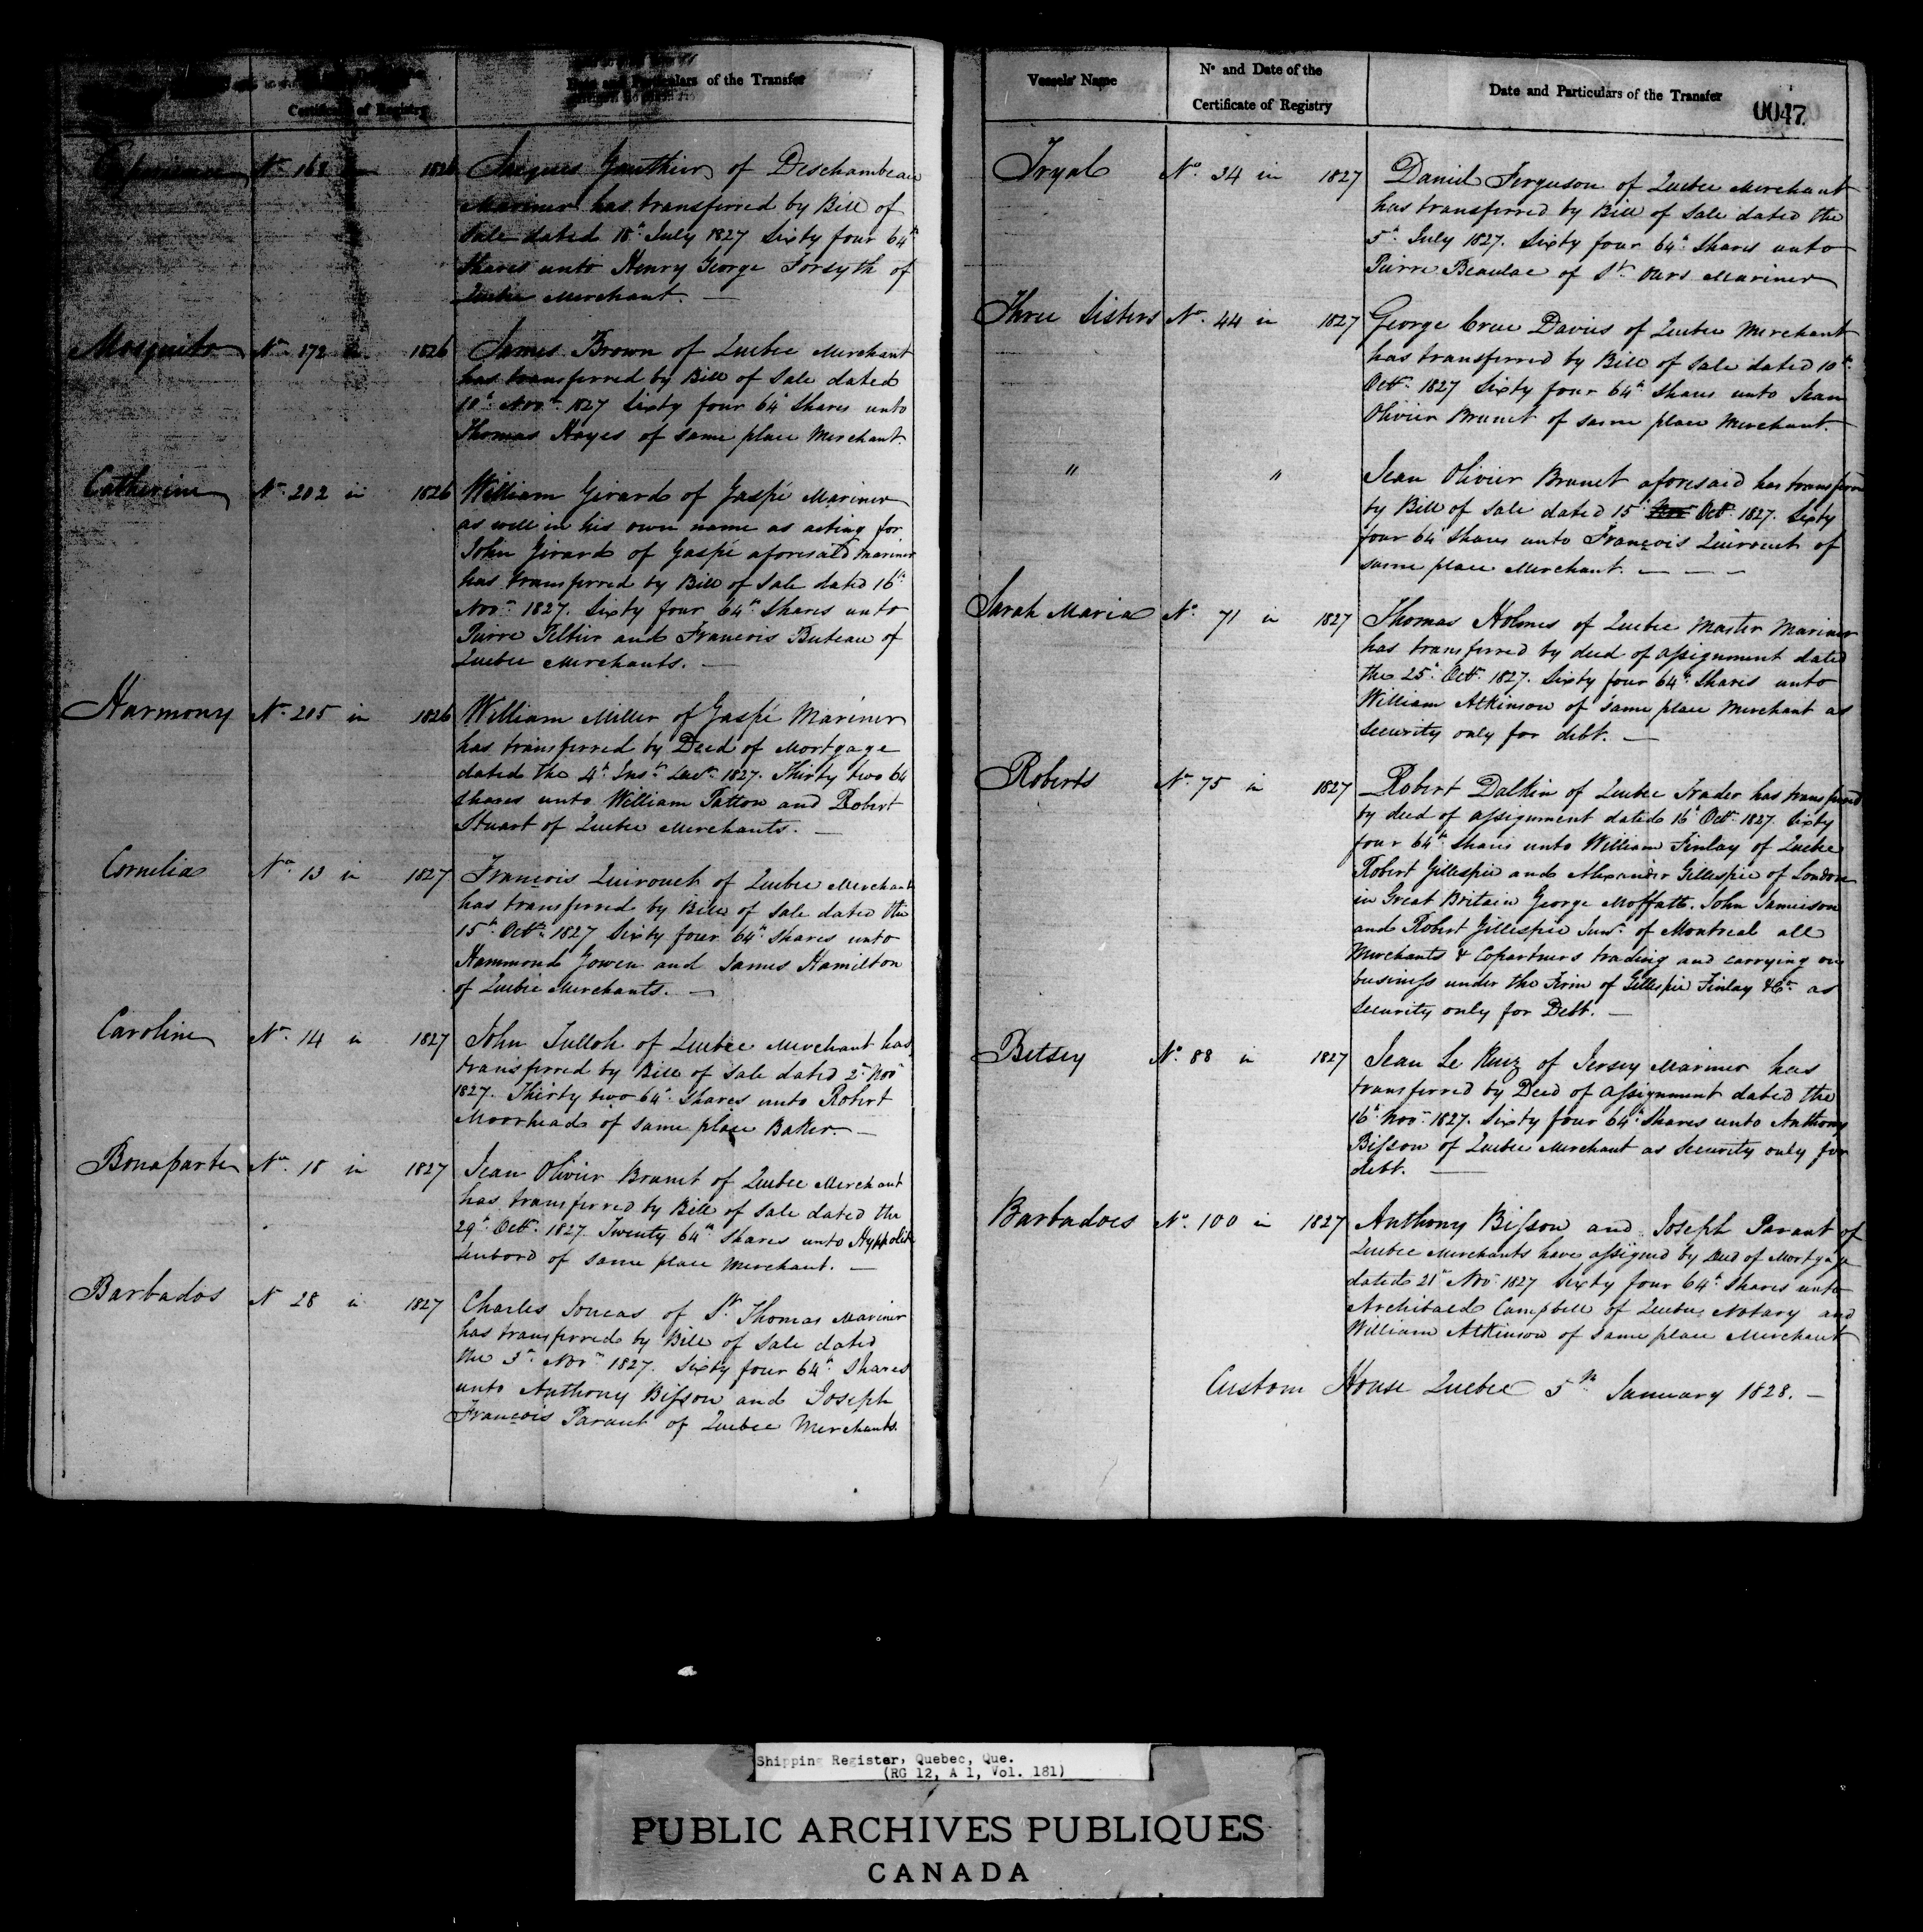 Certificate of Registry
Date and Particulars of the Transfer
Experience No. 168 in 1826 Jacques Gauthier of Deschambeau
Mariner has transferred by Bill of
Sale dated 18th July 1827 Sixty four 64th
Shares unto Henry George Forsyth of
Quebec Merchant. —
Mosquito No. 172 in 1826 James Brown of Quebec Merchant
has transferred by Bill of Sale dated
10th Novr. 1827 Sixty four 64th Shares unto
Thomas Hayes of same place Merchant.
Catherine No. 202 in 1826 William Girard of Gaspé Mariner
as well in his own name as acting for
John Girard of Gaspé aforesaid Mariner
has transferred by Bill of Sale dated 16th
Novr. 1827. Sixty four 64th Shares unto
Pierre Peltier and Francois Buteau of
Quebec Merchants. —
Harmony No. 205 in 1826 William Miller of Gaspé Mariner
has transferred by Deed of Mortgage
dated the 4th Inst. 1827. Thirty two 64
Shares unto William Patton and Robert
Stuart of Quebec Merchants. —
Cornelia No. 13 in 1827 François Quirouet of Quebec Merchant
has transferred by Bill of Sale dated the
15th Octr. 1827 Sixty four 64th Shares unto
Hammond Gowen and James Hamilton
of Quebec Merchants. —
Caroline No. 14 in 1827 John Tulloh of Quebec Merchant has
transferred by Bill of Sale dated 2nd Novr
1827. Thirty two 64th Shares unto Robert
Moorhead of same place Baker. —
Bonaparte No. 18 in 1827 Jean Olivier Brunet of Quebec Merchant
has transferred by Bill of Sale dated the
29th Octr. 1827. Twenty 64th Shares unto Hyppolite
Lenbord of same place Merchant. —
Barbados No 28 in 1827 Charles Joncas of St. Thomas Mariner
has transferred by Bill of Sale dated
the 3rd Novr. 1827. Sixty four 64th Shares
unto Anthony Bisson and Joseph
François Parant of Quebec Merchants.
Vessels' Name
No and Date of the
Certificate of Registry
Date and Particulars of the Transfer
0047
Tryal No. 34 in 1827 Daniel Ferguson of Quebec Merchant
has transferred by Bill of Sale dated the
5th July 1827. Sixty four 64th Shares unto
Pierre Beaulac of St. Ours Mariner
Three Sisters No. 44 in 1827 George Crue Davies of Quebec Merchant
has transferred by Bill of Sale dated 10th
Octr. 1827 Sixty four 64th Shares unto Jean
Olivier Brunet of same place Merchant.
" " Jean Olivier Brunet aforesaid has transferred
by Bill of Sale dated 15th Nov Octr. 1827. Sixty
four 64 Shares unto François Quirouet of
same place Merchant. — — —
Sarah Maria No. 71 in 1827 Thomas Holmes of Quebec Master Mariner
has transferred by deed of assignment dated
the 25th Octr. 1827. Sixty four 64th Shares unto
William Atkinson of same place Merchant as
Security only for debt. —
Roberts No. 75 in 1827 Robert Dalkin of Quebec Trader has transferred
by deed of assignment dated 16th Octr. 1827. Sixty
four 64th Shares unto William Finlay of Quebec
Robert Gillespie and Alexander Gillespie of London
in Great Britain George Moffatt. John Jamieson
and Robert Gillespie Junr. of Montreal all
Merchants & Copartners trading and carrying on
business under the Firm of Gillespie Finlay &Co. as
Security only for Debt. —
Betsey No. 88 in 1827 Jean Le of Jersey Mariner has
transferred by Deed of assignment dated the
16th Novr. 1827. Sixty four 64th Shares unto Anthony
Bisson of Quebec Merchant as Security only for
debt. —
Barbadoes No. 100 in 1827 Anthony Bisson and Joseph Parant of
Quebec Merchants have assigned by Deed of Mortgage
dated 21st Novr 1827 Sixty four 64th Shares unto
Archibald Campbell of Quebec Notary and
William Atkinson of same place Merchant
Custom House Quebec 5th January 1828. —
Shipping Register, Quebec, Que.
(RG 12, A 1, Vol. 181)
PUBLIC ARCHIVES PUBLIQUES
CANADA